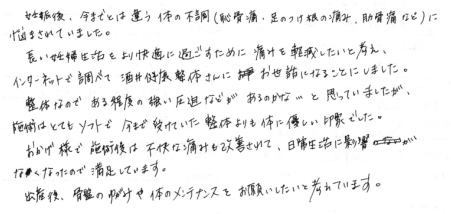 妊娠後、今までとは違う体の不調(恥骨痛・足のつけ根の痛み、肋骨痛など)に
悩まされていました。
長い妊婦生活をより快適に過ごすために痛みを軽減したいと考え、
インターネットで調べて酒井健康整体さんにお世話になることにしました。
整体なので ある程度の強い圧迫などが あるのかな…と思っていましたが、
施術はとてもソフトで 今まで受けていた整体よりも体に優しい印象でした。
おかげ様で施術後は 不快な痛みも改善されて、日常生活に影響が
なくなったので満足しています。
出産後、骨盤のゆがみや体のメンテナンスをお願いしたいと考えています。